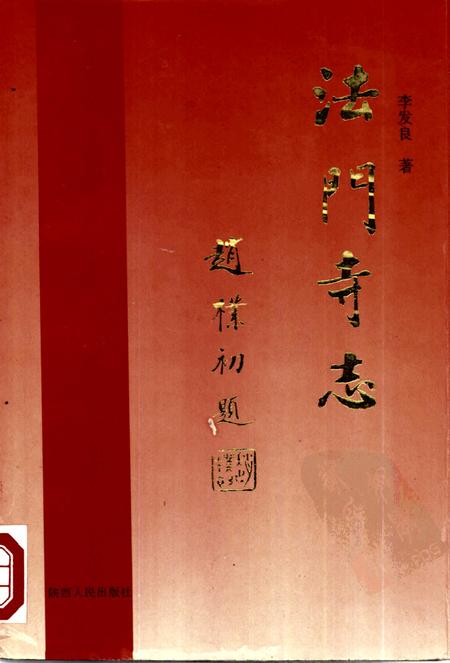 李发良 著
法門寺志
趙樸初題
陕西人民出版社